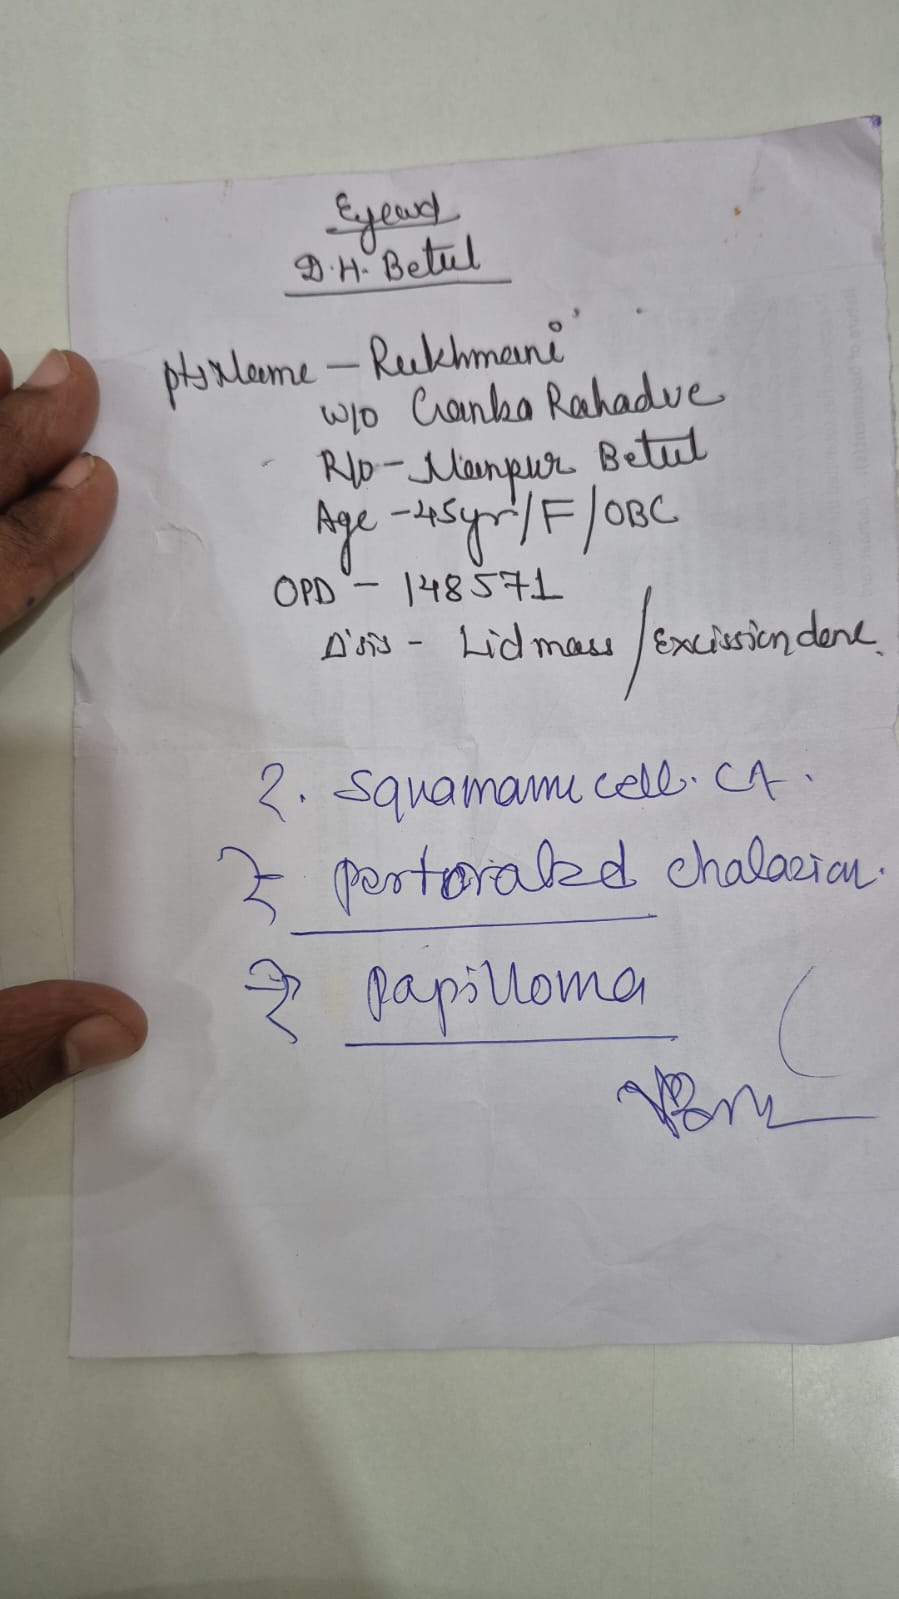 Eyewd
D.H. Betul
pts Name - Rukhmani
W/O Ganba Rahadve
R/o - Manpur Betul
Age - 45yr/F/OBC
OPD - 148571
D'sis - Lid mass / Excission done.
?. Squamamu cell. CA.
? pertorated chalazion.
? papilloma